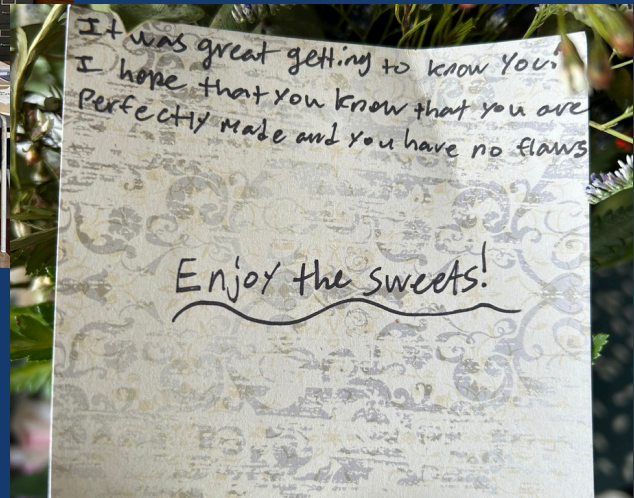 It was great getting to know You!
I hope that you know that you are
Perfectly Made and you have no flaws
Enjoy the sweets!